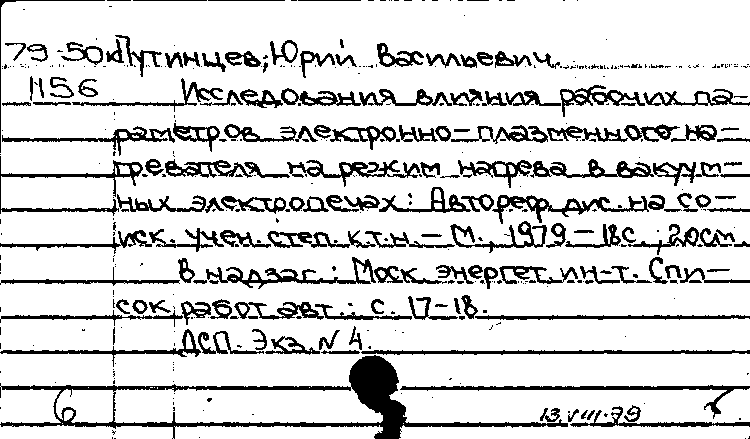 79-50к Путинцев, Юрий Васильевич.
1156 Исследования влияния рабочих па-
раметров электронно-плазменного на-
гревателя на режим нагрева в вакуум-
ных электропечах: Автореф. дис. на со-
иск. учен. степ. к.т.н. – М., 1979. – 18с.; 20см.
В надзаг.: Моск. энергет. ин-т. Спи-
сок работ авт.: с. 17-18.
ДСП. Экз. N 4.
6 13.VIII.79